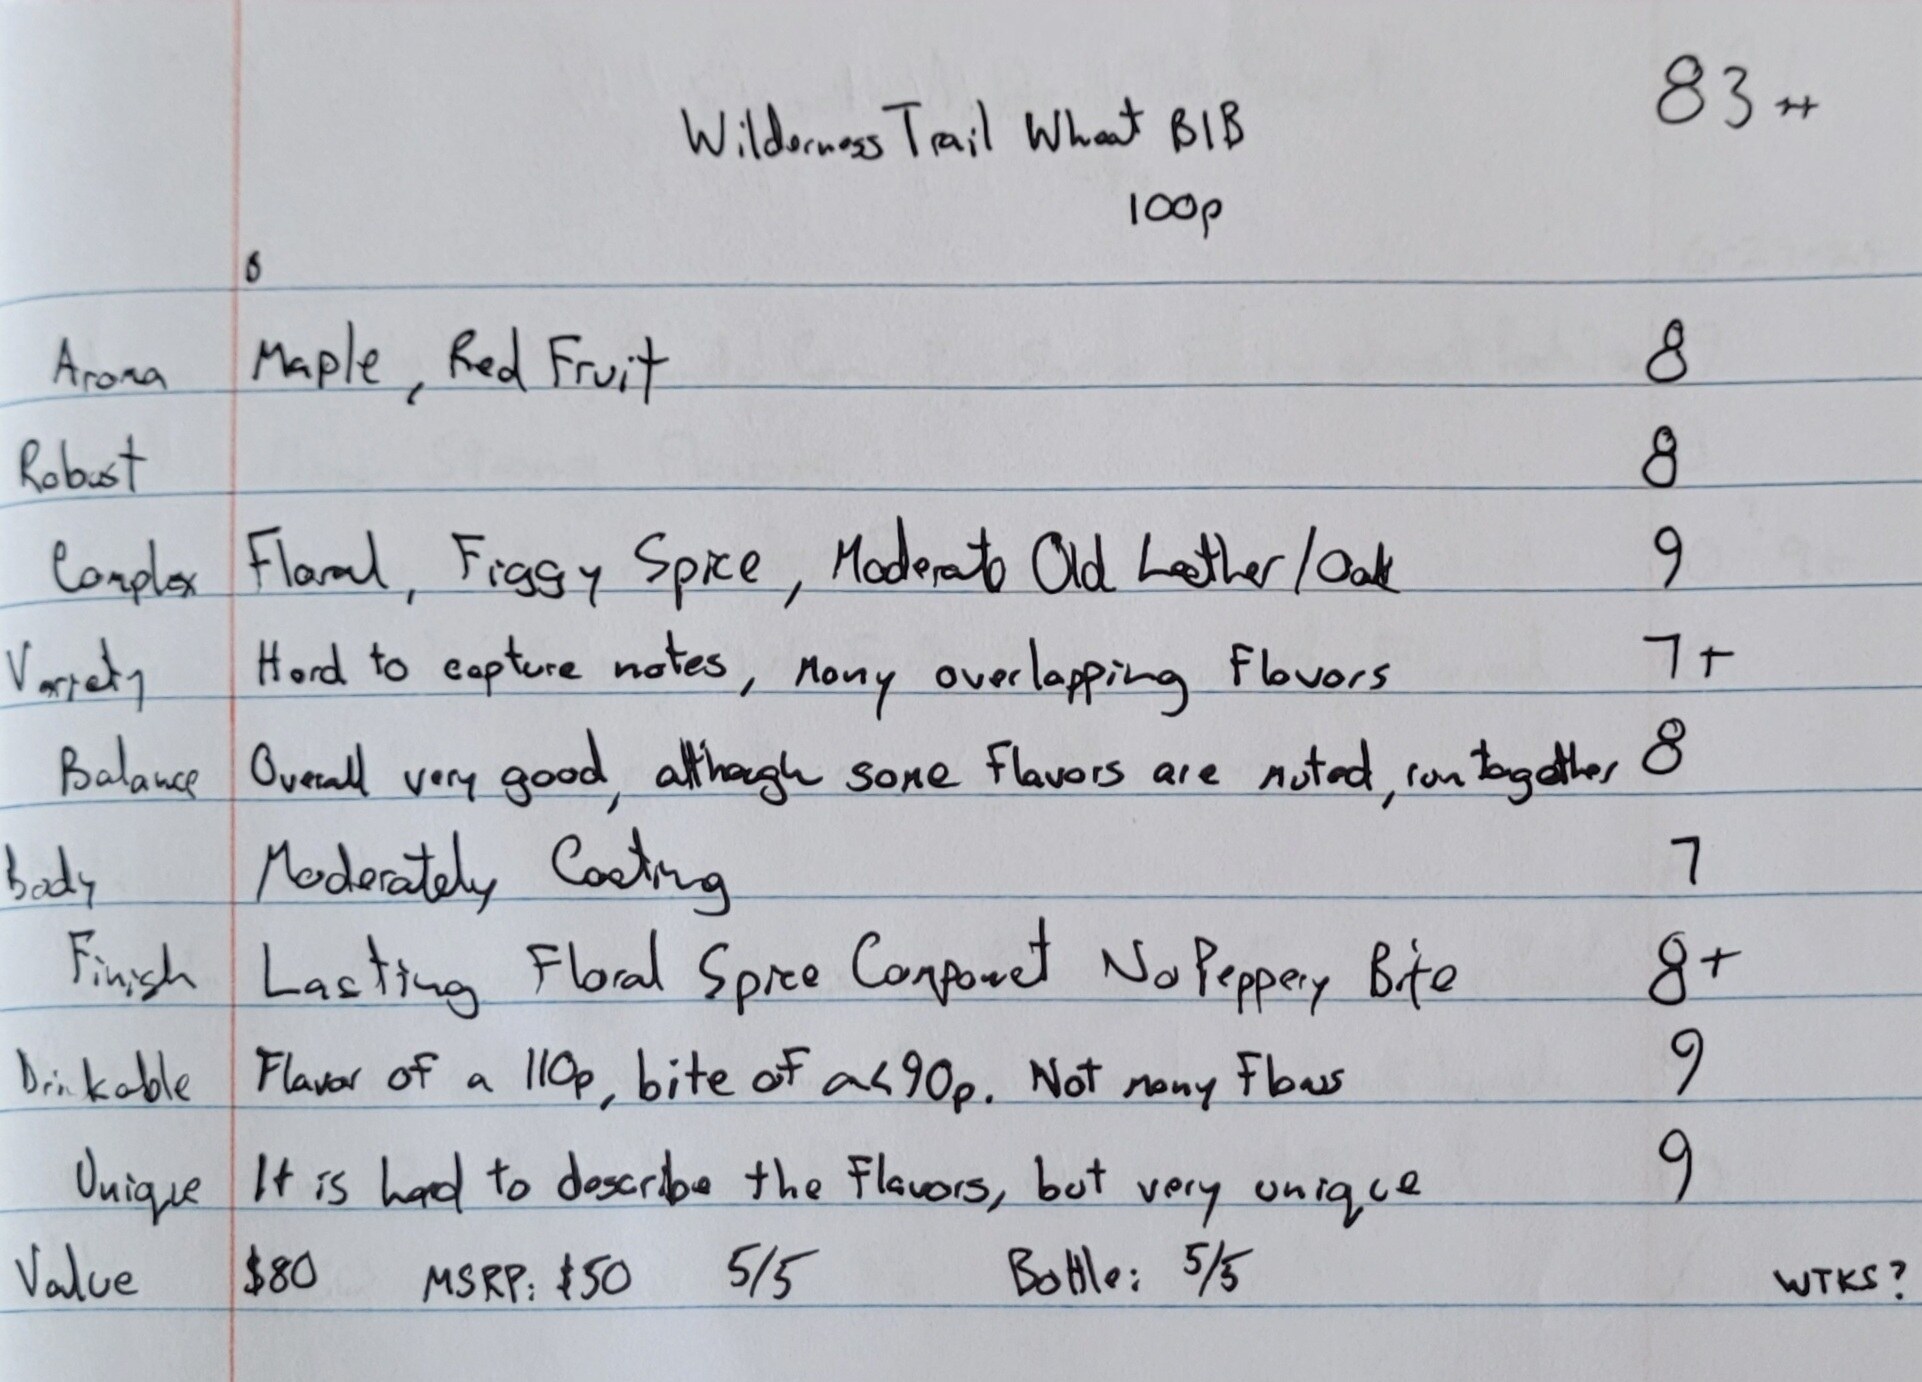 83 ++
Wilderness Trail Wheat BIB
100p
Aroma Maple, Red Fruit 8
Robust 8
Complex Floral, Figgy Spice, Moderate Old Leather/Oak 9
Variety Hard to capture notes, many overlapping flavors 7+
Balance Overall very good, although some flavors are muted, run together 8
Body Moderately Coating 7
Finish Lasting Floral Spice Componet No Peppery Bite 8+
Drinkable Flavor of a 110p, bite of a <90p. Not many flaws 9
Unique It is hard to describe the flavors, but very unique 9
Value $80 MSRP: $50 5/5 Bottle: 5/5 WTKS?